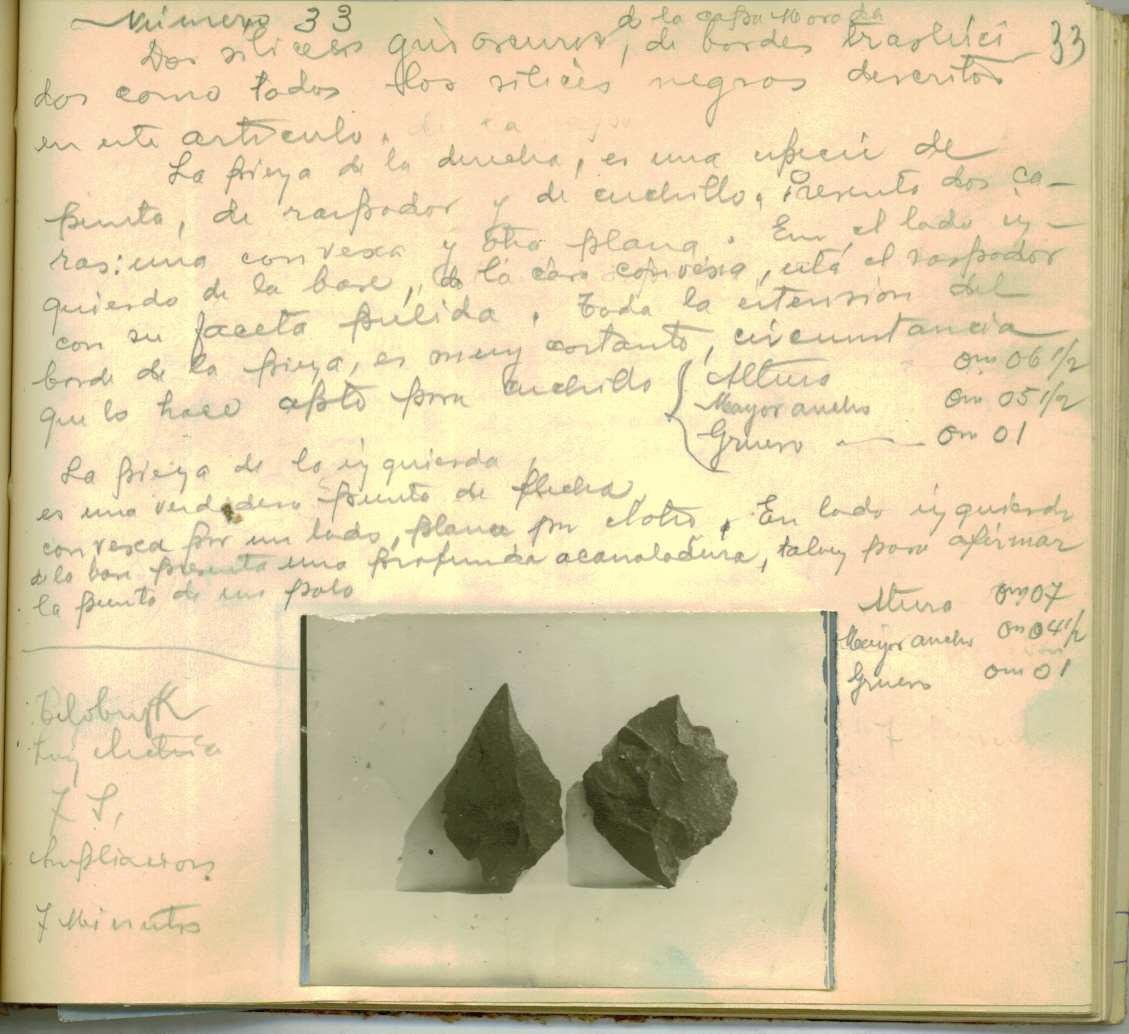 Número 33
de la capa Morada
33
Dos silices gris oscuros, de bordes traslúci-
dos como todos los silices negros descritos
en este artículo.
La pieza de la derecha, es una especie de
punta, de raspador y de cuchillo. Presenta dos ca-
ras: una convexa y otra plana. En el lado iz-
quierdo de la base, de la cara convexa, está el raspador
con su faceta pulida. Toda la extension del
borde de la pieza, es muy cortante, circunstancia
que lo hace apto para cuchillo
Altura 0m 06 1/2
Mayor ancho 0m 05 1/2
Grueso 0m 01
La pieza de la izquierda
es una verdadera punta de flecha,
convexa por un lado, plana por el otro. En lado izquierdo
de la base presenta una profunda acanaladura, talvez para afirmar
la punta de un palo
Altura 0m 07
Mayor ancho 0m 04 1/2
Grueso 0m 01
luz electrica
7 S.
Ampliacion
7 Minutos